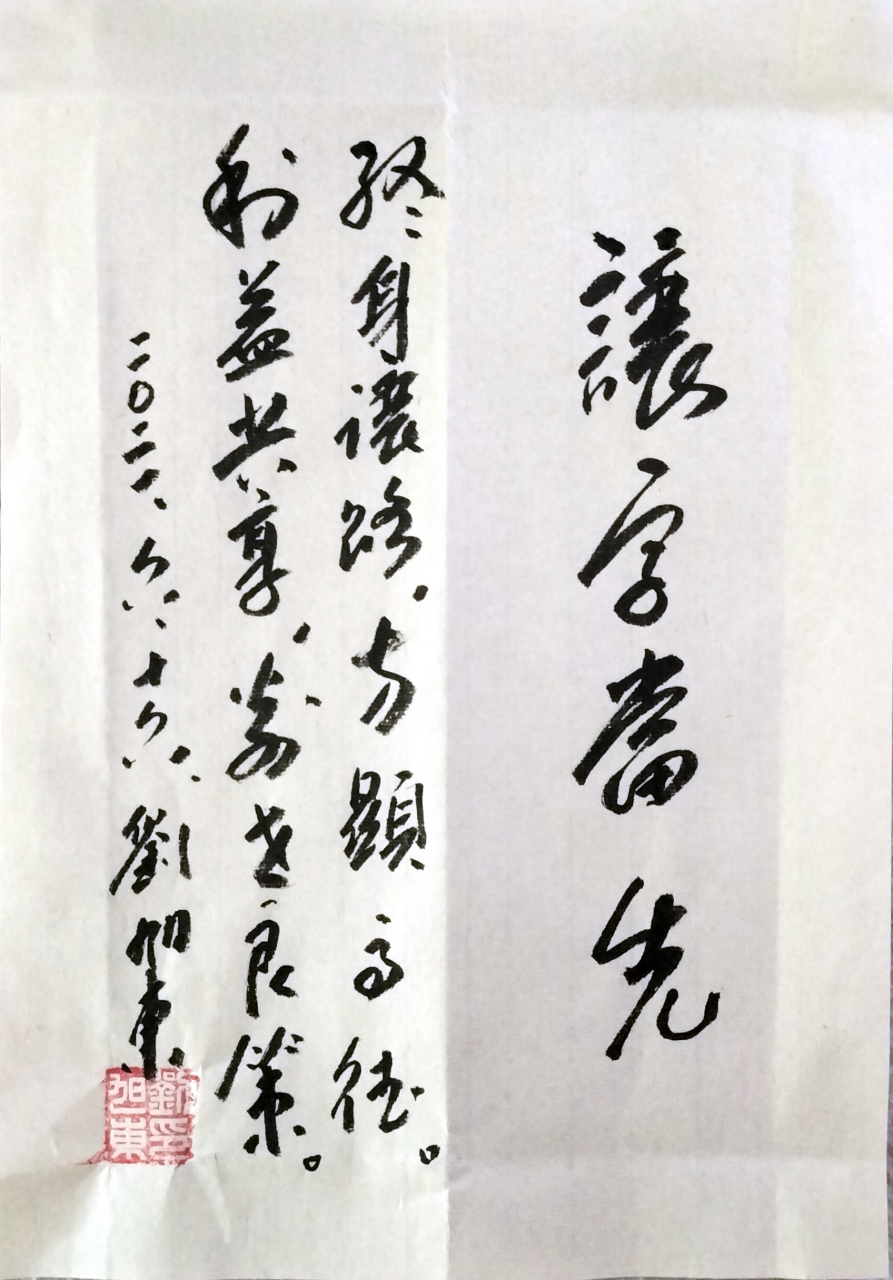 讓字當先
終身讓路、方顯高德。
利益共享、世良策。
二〇二一、六、十六、劉旭東
劉印
旭東